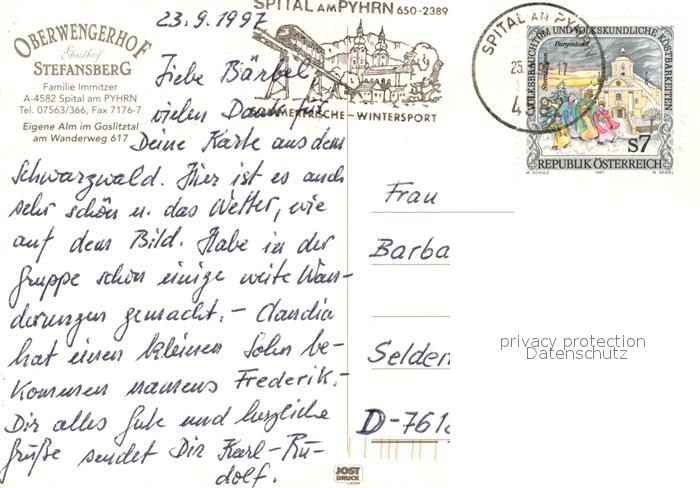 OBERWENGERHOF
Gasthof
STEFANSBERG
Familie Immitzer
A-4582 Spital am PYHRN
Tel. 07563/366, Fax 7176-7
Eigene Alm im Goslitztal
am Wanderweg 617
SPITAL AM PYHRN 650-2389
SOMMERFRISCHE - WINTERSPORT
23.9.1997
Liebe Bärbel,
vielen Dank für
Deine Karte aus dem
Schwarzwald. Hier ist es auch
sehr schön u. das Wetter, wie
auf dem Bild. Habe in der
Gruppe schon einige weite Wan-
derungen gemacht. - Claudia
hat einen kleinen Sohn be-
kommen namens Frederik. -
Dir alles Gute und herzliche
Grüße sendet Dir Karl-Ru-
dolf.
SPITAL AM PY
25.
17
VOLKSBRAUCHTUM UND VOLKSKUNDLICHE KOSTBARKEITEN
Burgenland
S7
REPUBLIK ÖSTERREICH
M. SCHULZ 1997 W. SEIDEL
Frau
Barba
Selden
D-761
privacy protection
Datenschutz
JOST
DRUCK